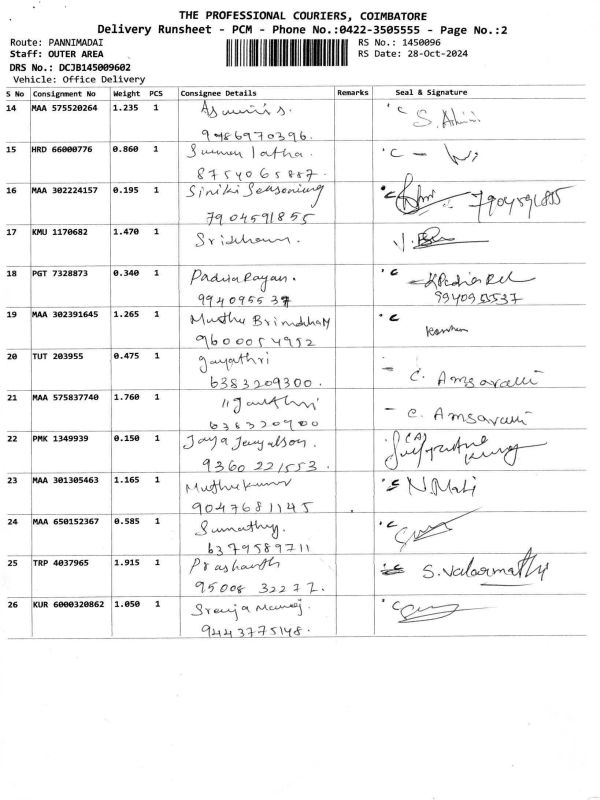 THE PROFESSIONAL COURIERS, COIMBATORE
Delivery Runsheet - PCM - Phone No.:0422-3505555 - Page No.:2
Route: PANNIMADAI RS No.: 1450096
Staff: OUTER AREA RS Date: 28-Oct-2024
DRS No.: DCJB145009602
Vehicle: Office Delivery
S No Consignment No Weight PCS Consignee Details Remarks Seal & Signature
14 MAA 575520264 1.235 1
9486970396.
15 HRD 66000776 0.860 1 latha.
8754065887.
16 MAA 302224157 0.195 1 Siniki Seasoning 7904591855
7904591855
17 KMU 1170682 1.470 1
18 PGT 7328873 0.340 1
9940955537 9940955537
19 MAA 302391645 1.265 1 Muthu
9600054952
20 TUT 203955 0.475 1 Gayathri C. Amsavalli
6383209300.
21 MAA 575837740 1.760 1 C. Amsavalli
22 PMK 1349939 0.150 1 Jaya
9360221553.
23 MAA 301305463 1.165 1 Muthukumar N. Mali
9047681145
24 MAA 650152367 0.585 1 Sumathy.
6379589711
25 TRP 4037965 1.915 1 Prashanth S. Valarmathy
95008 32272.
26 KUR 6000320862 1.050 1
9443775148.